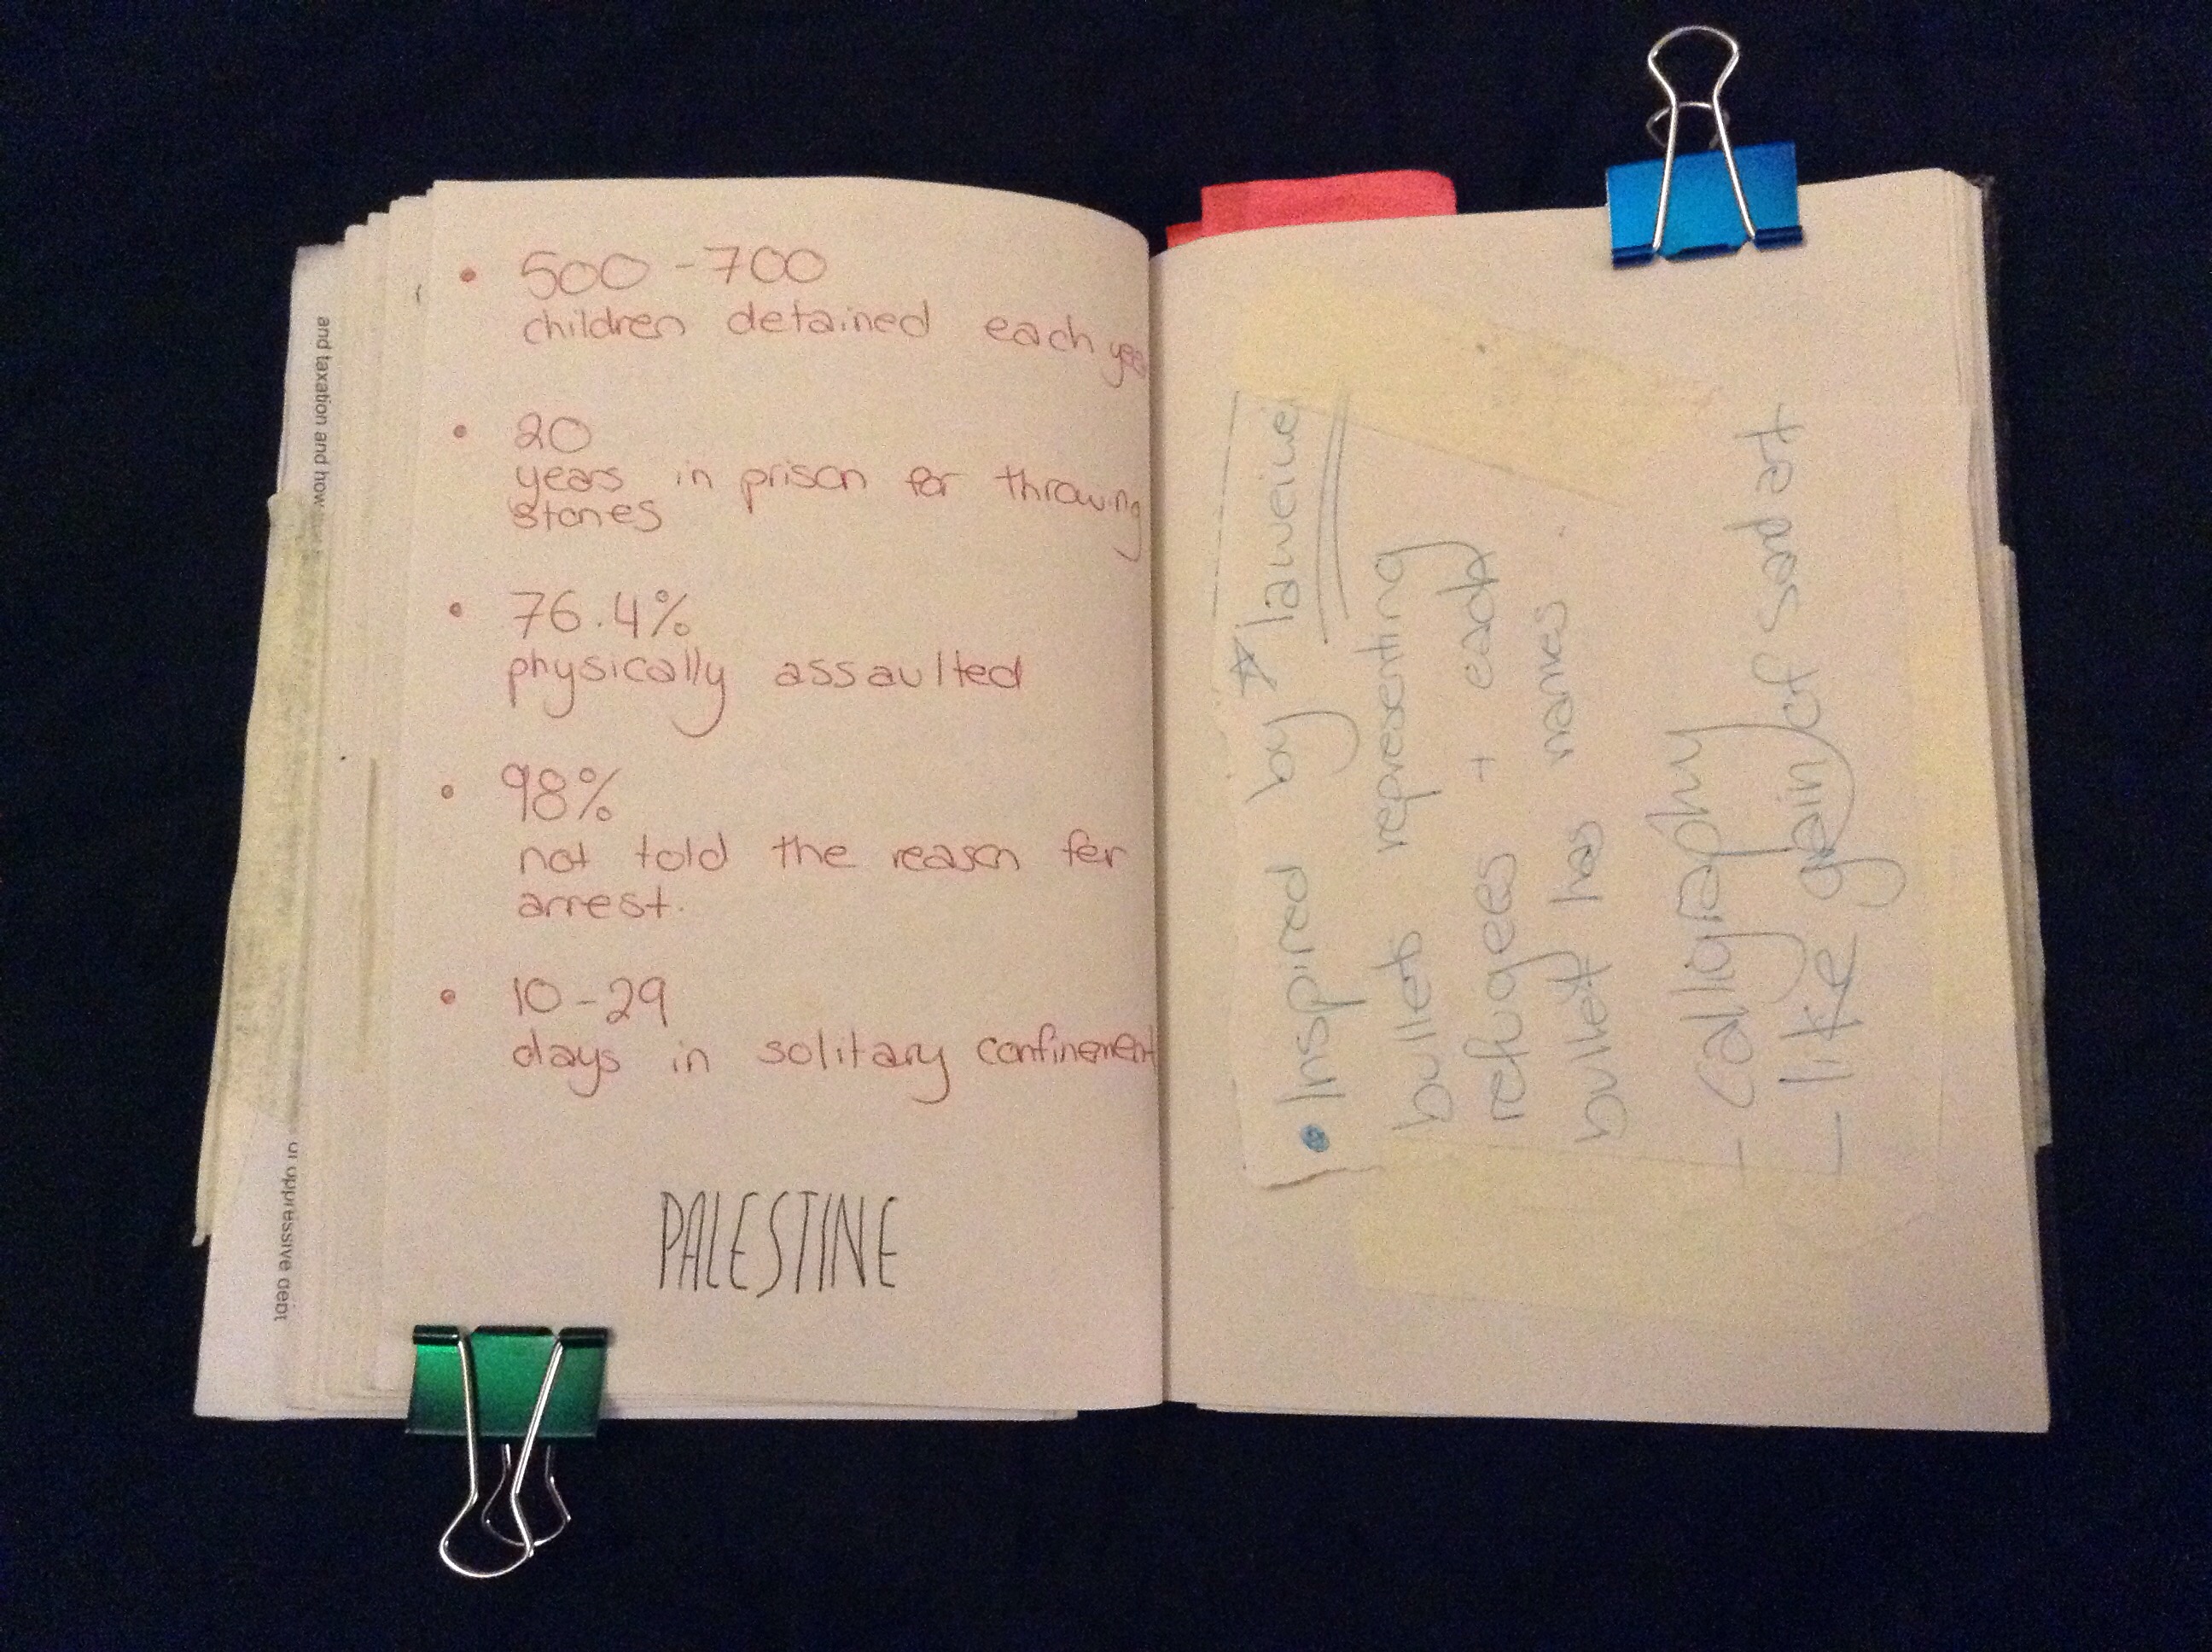 and taxation and how
oppressive debt
• 500-700
children detained each yea
• 20
years in prison for throwing
stones
• 76.4%
physically assaulted
• 98%
not told the reason for
arrest.
• 10-29
days in solitary confinement
PALESTINE
• Inspired by ☆
bullets representing
refugees + each
bullet has names.
- calligraphy
- like gain of sad art